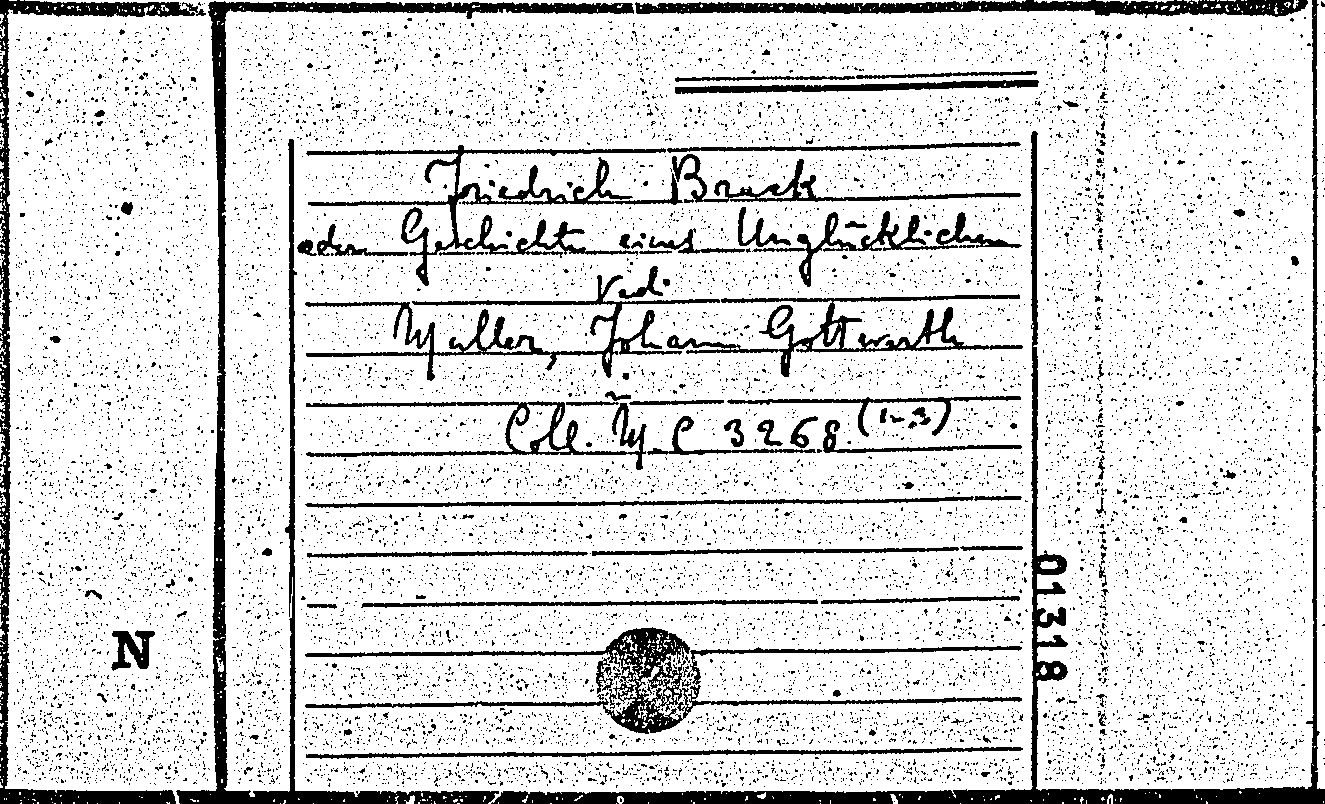 Friedrich Brack
oder Geschichte eines Unglücklichen
Vedi
Müller, Johann Gottwerth
Coll. M. C 3268 (1-3)
01318
N